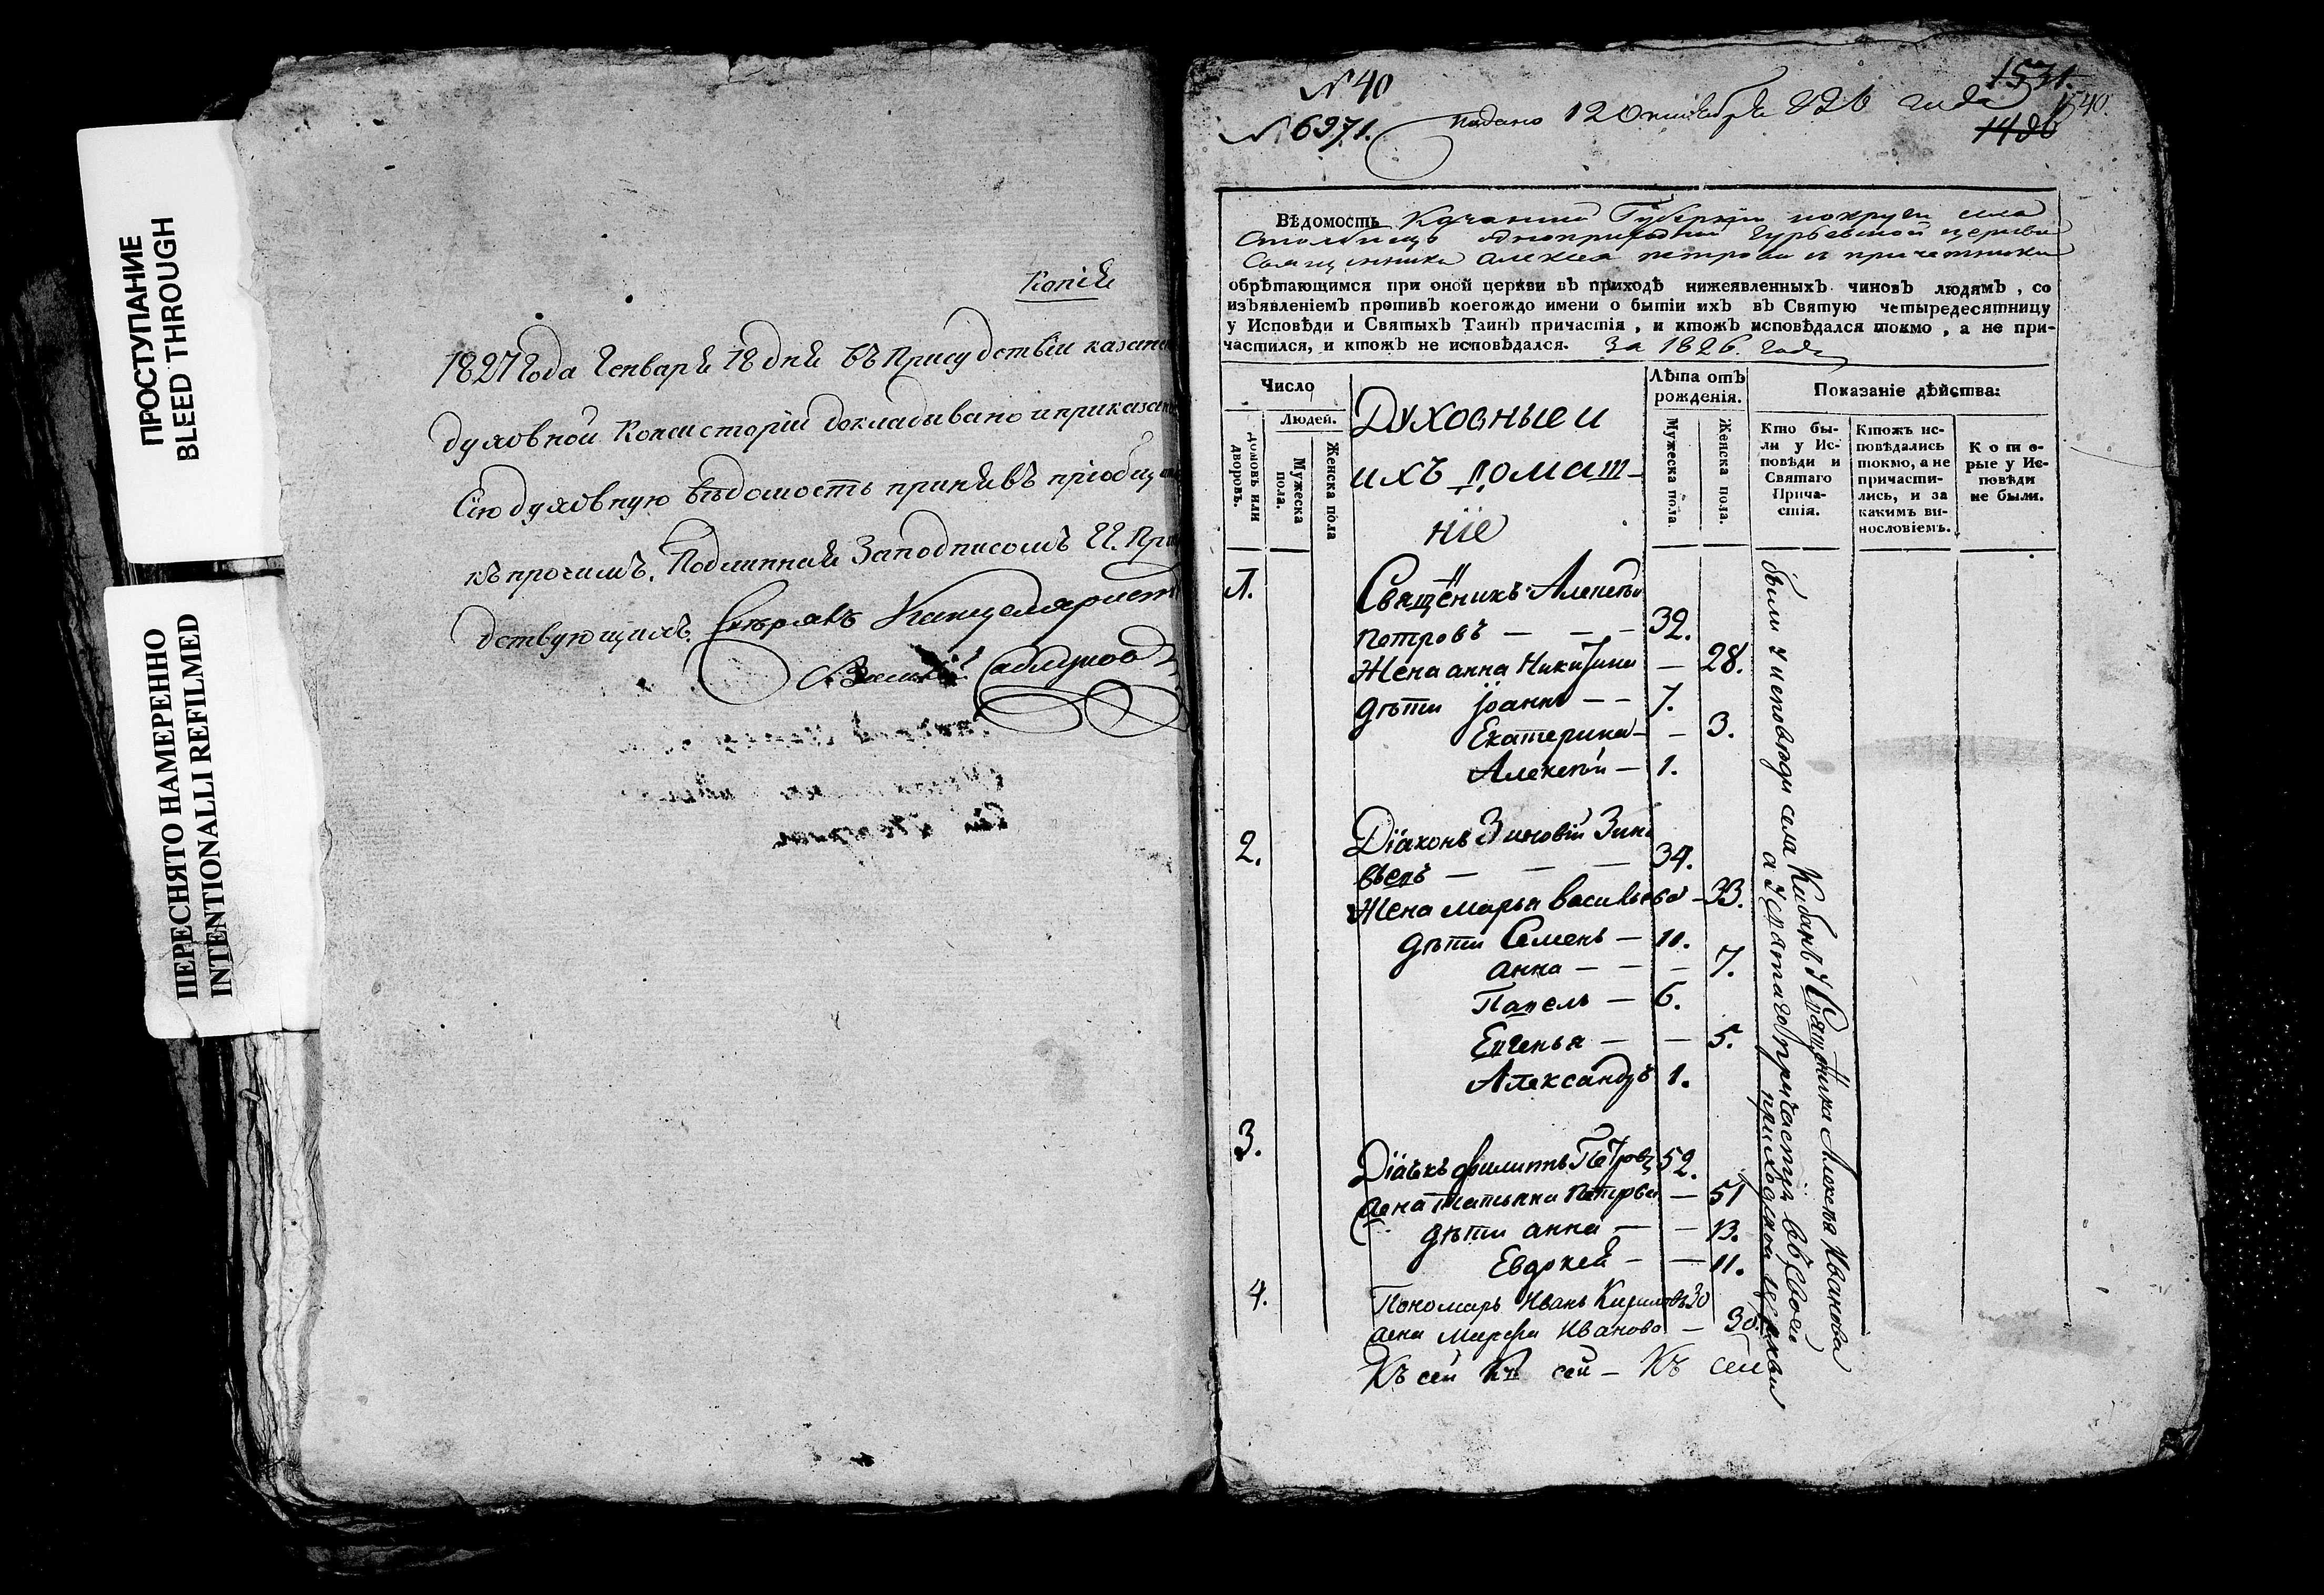 ПРОСТУПАНИЕ
BLEED THROUGH
ПЕРЕСНЯТО НАМЕРЕННО
INTENTIONALLI REFILMED
Копія
1827 Года Генваря 18 дня въ Присудствіи казанс
духовной Консисторіи докладывано и приказан
Сію духовную вѣдомость принявъ пріобщ
къ прочимъ. Подлинная Заподписомъ
дствующихъ. Канцеляристъ
N 40
1531.
1540.
N 6971.
подано 12 Октября 826 года
1486
Вѣдомость Казанской Губерніи и округи села
Столбищъ одноприходной Гурьевской церкви
Священника Алексея петрова и причетники
обрѣтающимся при оной церкви въ приходѣ нижеявленныхъ чиновъ людямъ, со
изъявленіемъ противъ коегождо имени о бытіи ихъ въ Святую четыредесятницу
у Исповѣди и Святыхъ Таинъ причастія, и ктожъ исповѣдался токмо, а не при-
частился, и ктожъ не исповѣдался. За 1826. Годъ
Число
Людей.
домовъ или дворовъ.
Мужеска пола.
Женска пола
Духовные и
ихъ домаш-
ніе
Лѣта отъ
рожденія.
Мужеска пола.
Женска пола.
Показаніе дѣйства:
Кто бы-
ли у Ис-
повѣди и
Святаго
Прича-
стія.
Ктожъ ис-
повѣдались
токмо, а не
причасти-
лись, и за
какимъ ви-
нословіемъ.
Кото-
рые у Ис-
повѣди
не были.
1. Свящĕникъ Алексѣй
Петровъ — — — 32.
Жена анна Никитина — 28.
дѣти Іоаннъ — — 7.
Екатерина — — 3.
Алексѣй — 1.
2. Діаконъ Зиновій Зино
вьевъ — — — 34.
Жена марья васильева — 33.
дѣти Семенъ — 11.
анна — — — 7.
Павелъ — 6.
Евгенья — — 5.
Александръ 1.
3. Діачкъ филиппъ Петровъ 52.
жена татьяна петрова — 51
дѣти анна — — 13.
Евдокея — — 11.
4. Пономарь Иванъ Кириловъ 30
жена марфа Иванова — 30.
Къ сей Къ сей — Къ сей
были у исповѣди села Кибячъ у Священика Алексѣя Иванова
а у святаго причастія въ своей
приходской церкви